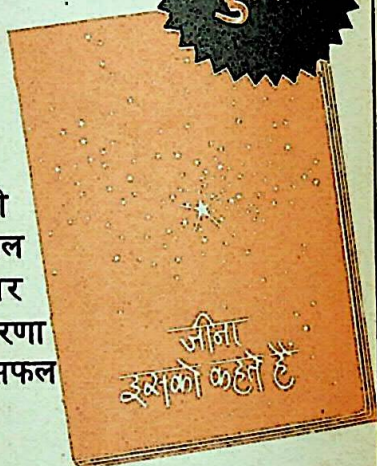 5
ी
ल
र
रणा
सफल
जीना
इसको कहते हैं